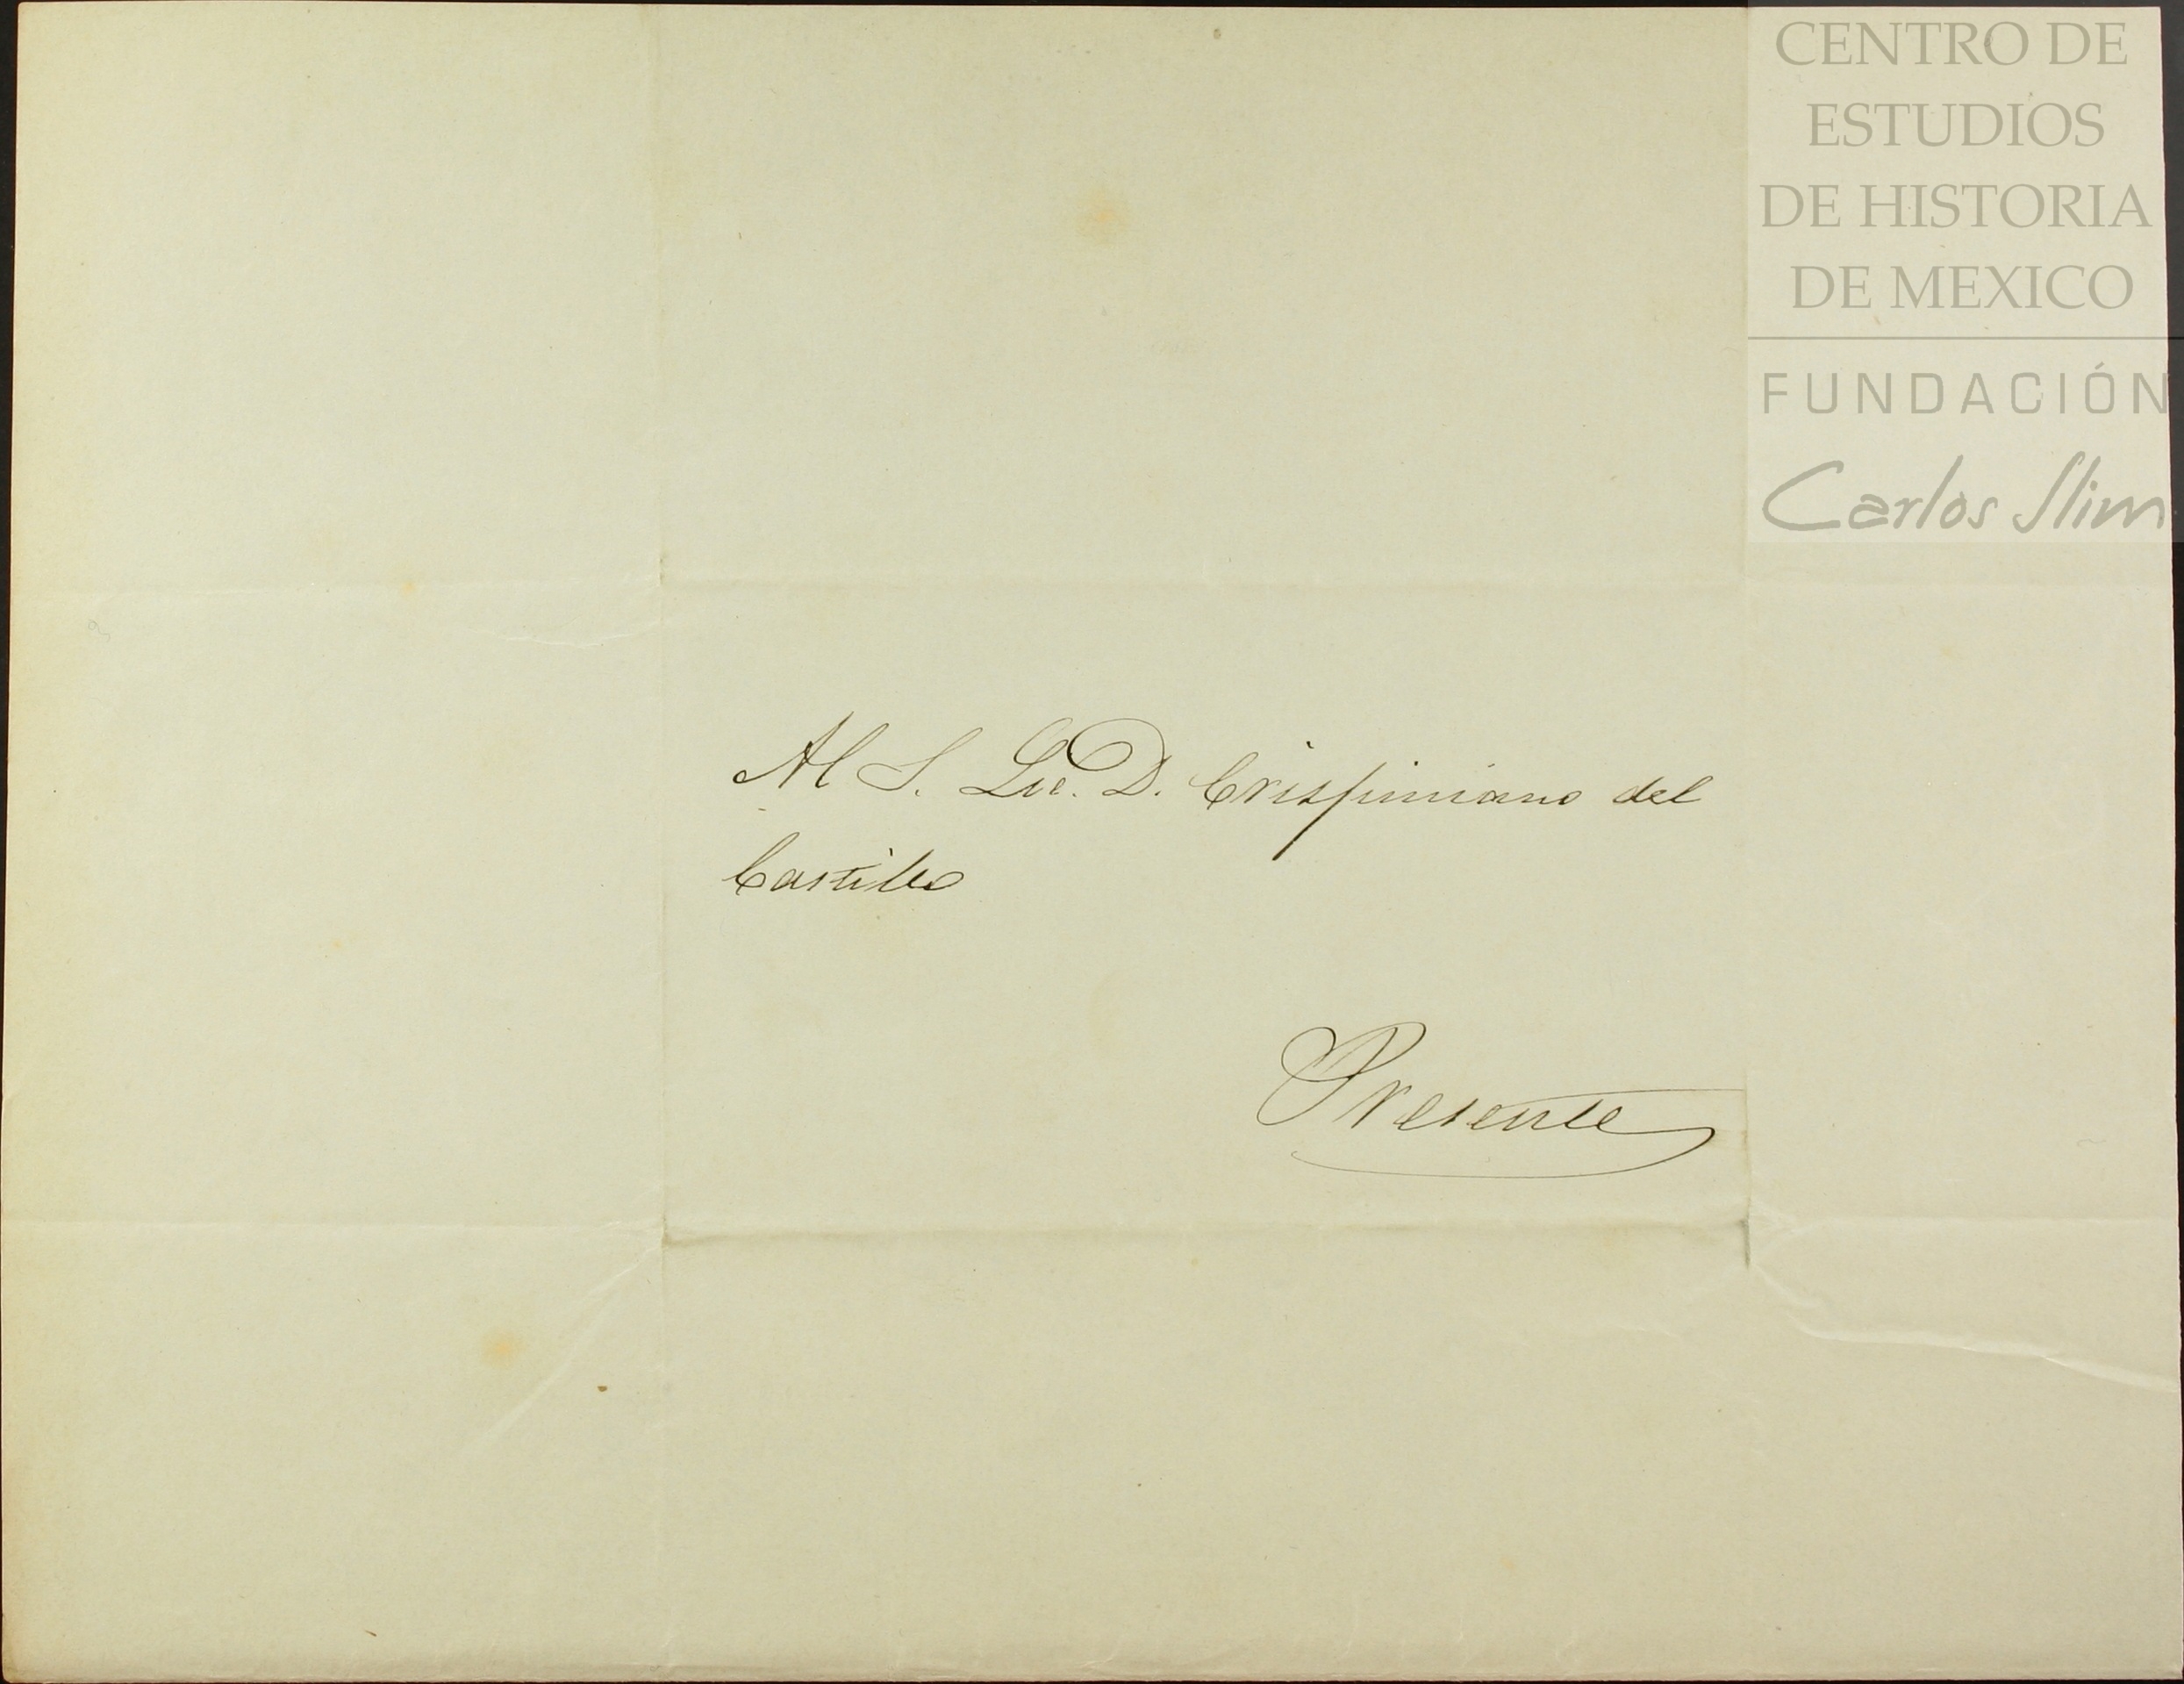 CENTRO DE
ESTUDIOS
DE HISTORIA
DE MEXICO
FUNDACIÓN
Carlos Slim
Al S. Lic. D. Crispiniano del
Castillo
Presente